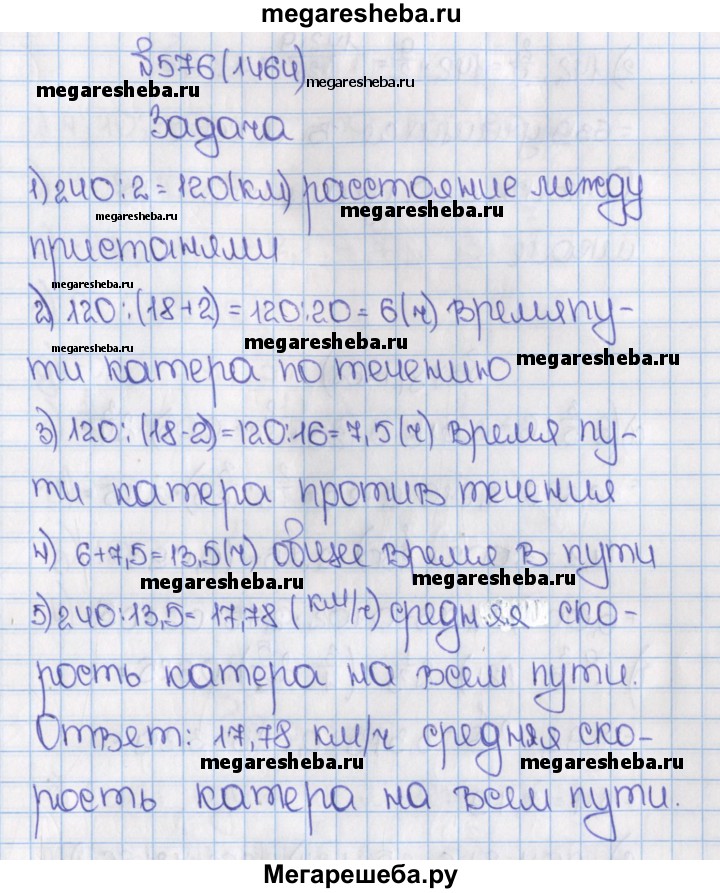 megaresheba.ru
№576(1464)
megaresheba.ru
megaresheba.ru
Задача
1) 240:2=120(км) расстояние между
megaresheba.ru
megaresheba.ru
пристанями
megaresheba.ru
2) 120:(18+2)=120:20=6(ч) время пу-
megaresheba.ru
megaresheba.ru
megaresheba.ru
ти катера по течению
3) 120:(18-2)=120:16=7,5(ч) время пу-
ти катера против течения
4) 6+7,5=13,5(ч) общее время в пути
megaresheba.ru
megaresheba.ru
5) 240:13,5=17,78 (км/ч) средняя ско-
рость катера на всем пути.
Ответ: 17,78 км/ч средняя ско-
megaresheba.ru
megaresheba.ru
рость катера на всем пути.
Мегарешеба.ру